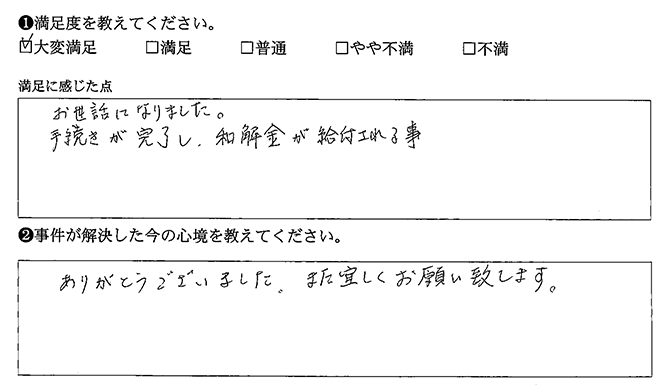 ❶満足度を教えてください。
☑大変満足 □満足 □普通 □やや不満 □不満
満足に感じた点
お世話になりました。
手続きが完了し、和解金が給付される事
❷事件が解決した今の心境を教えてください。
ありがとうございました。また宜しくお願い致します。